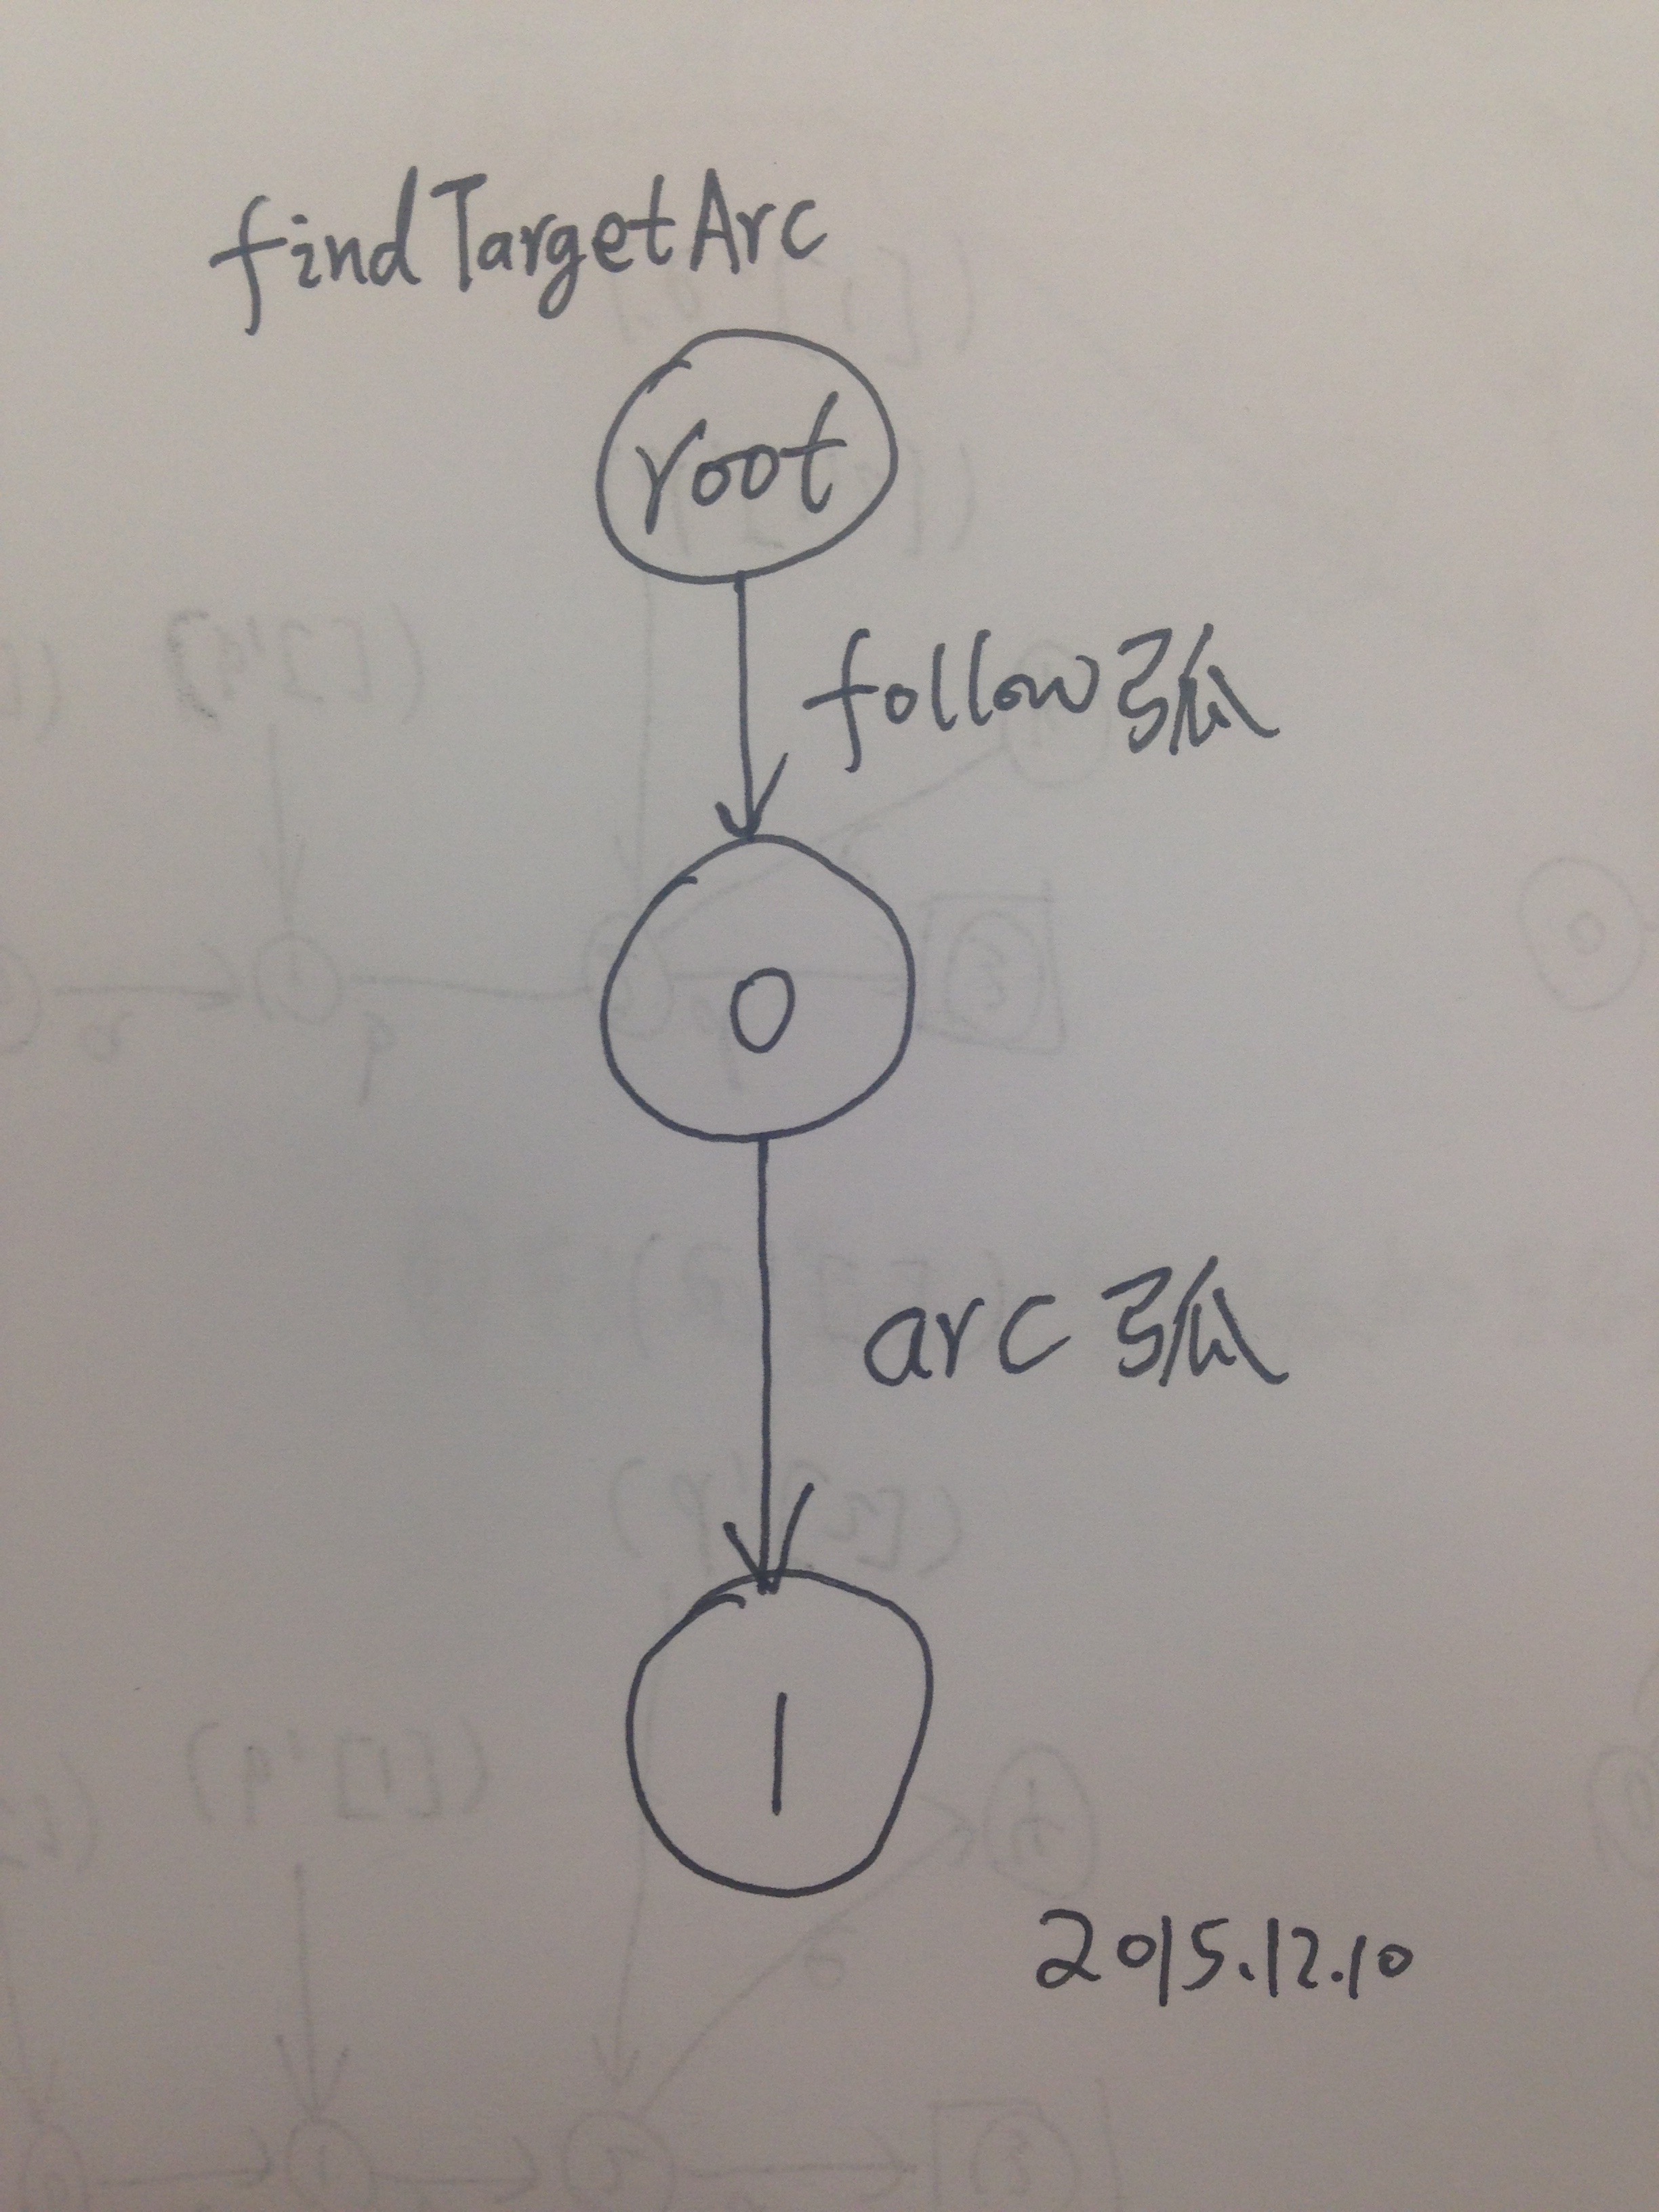 findTargetArc
root
follow弧
0
arc 弧
1
2015.12.10